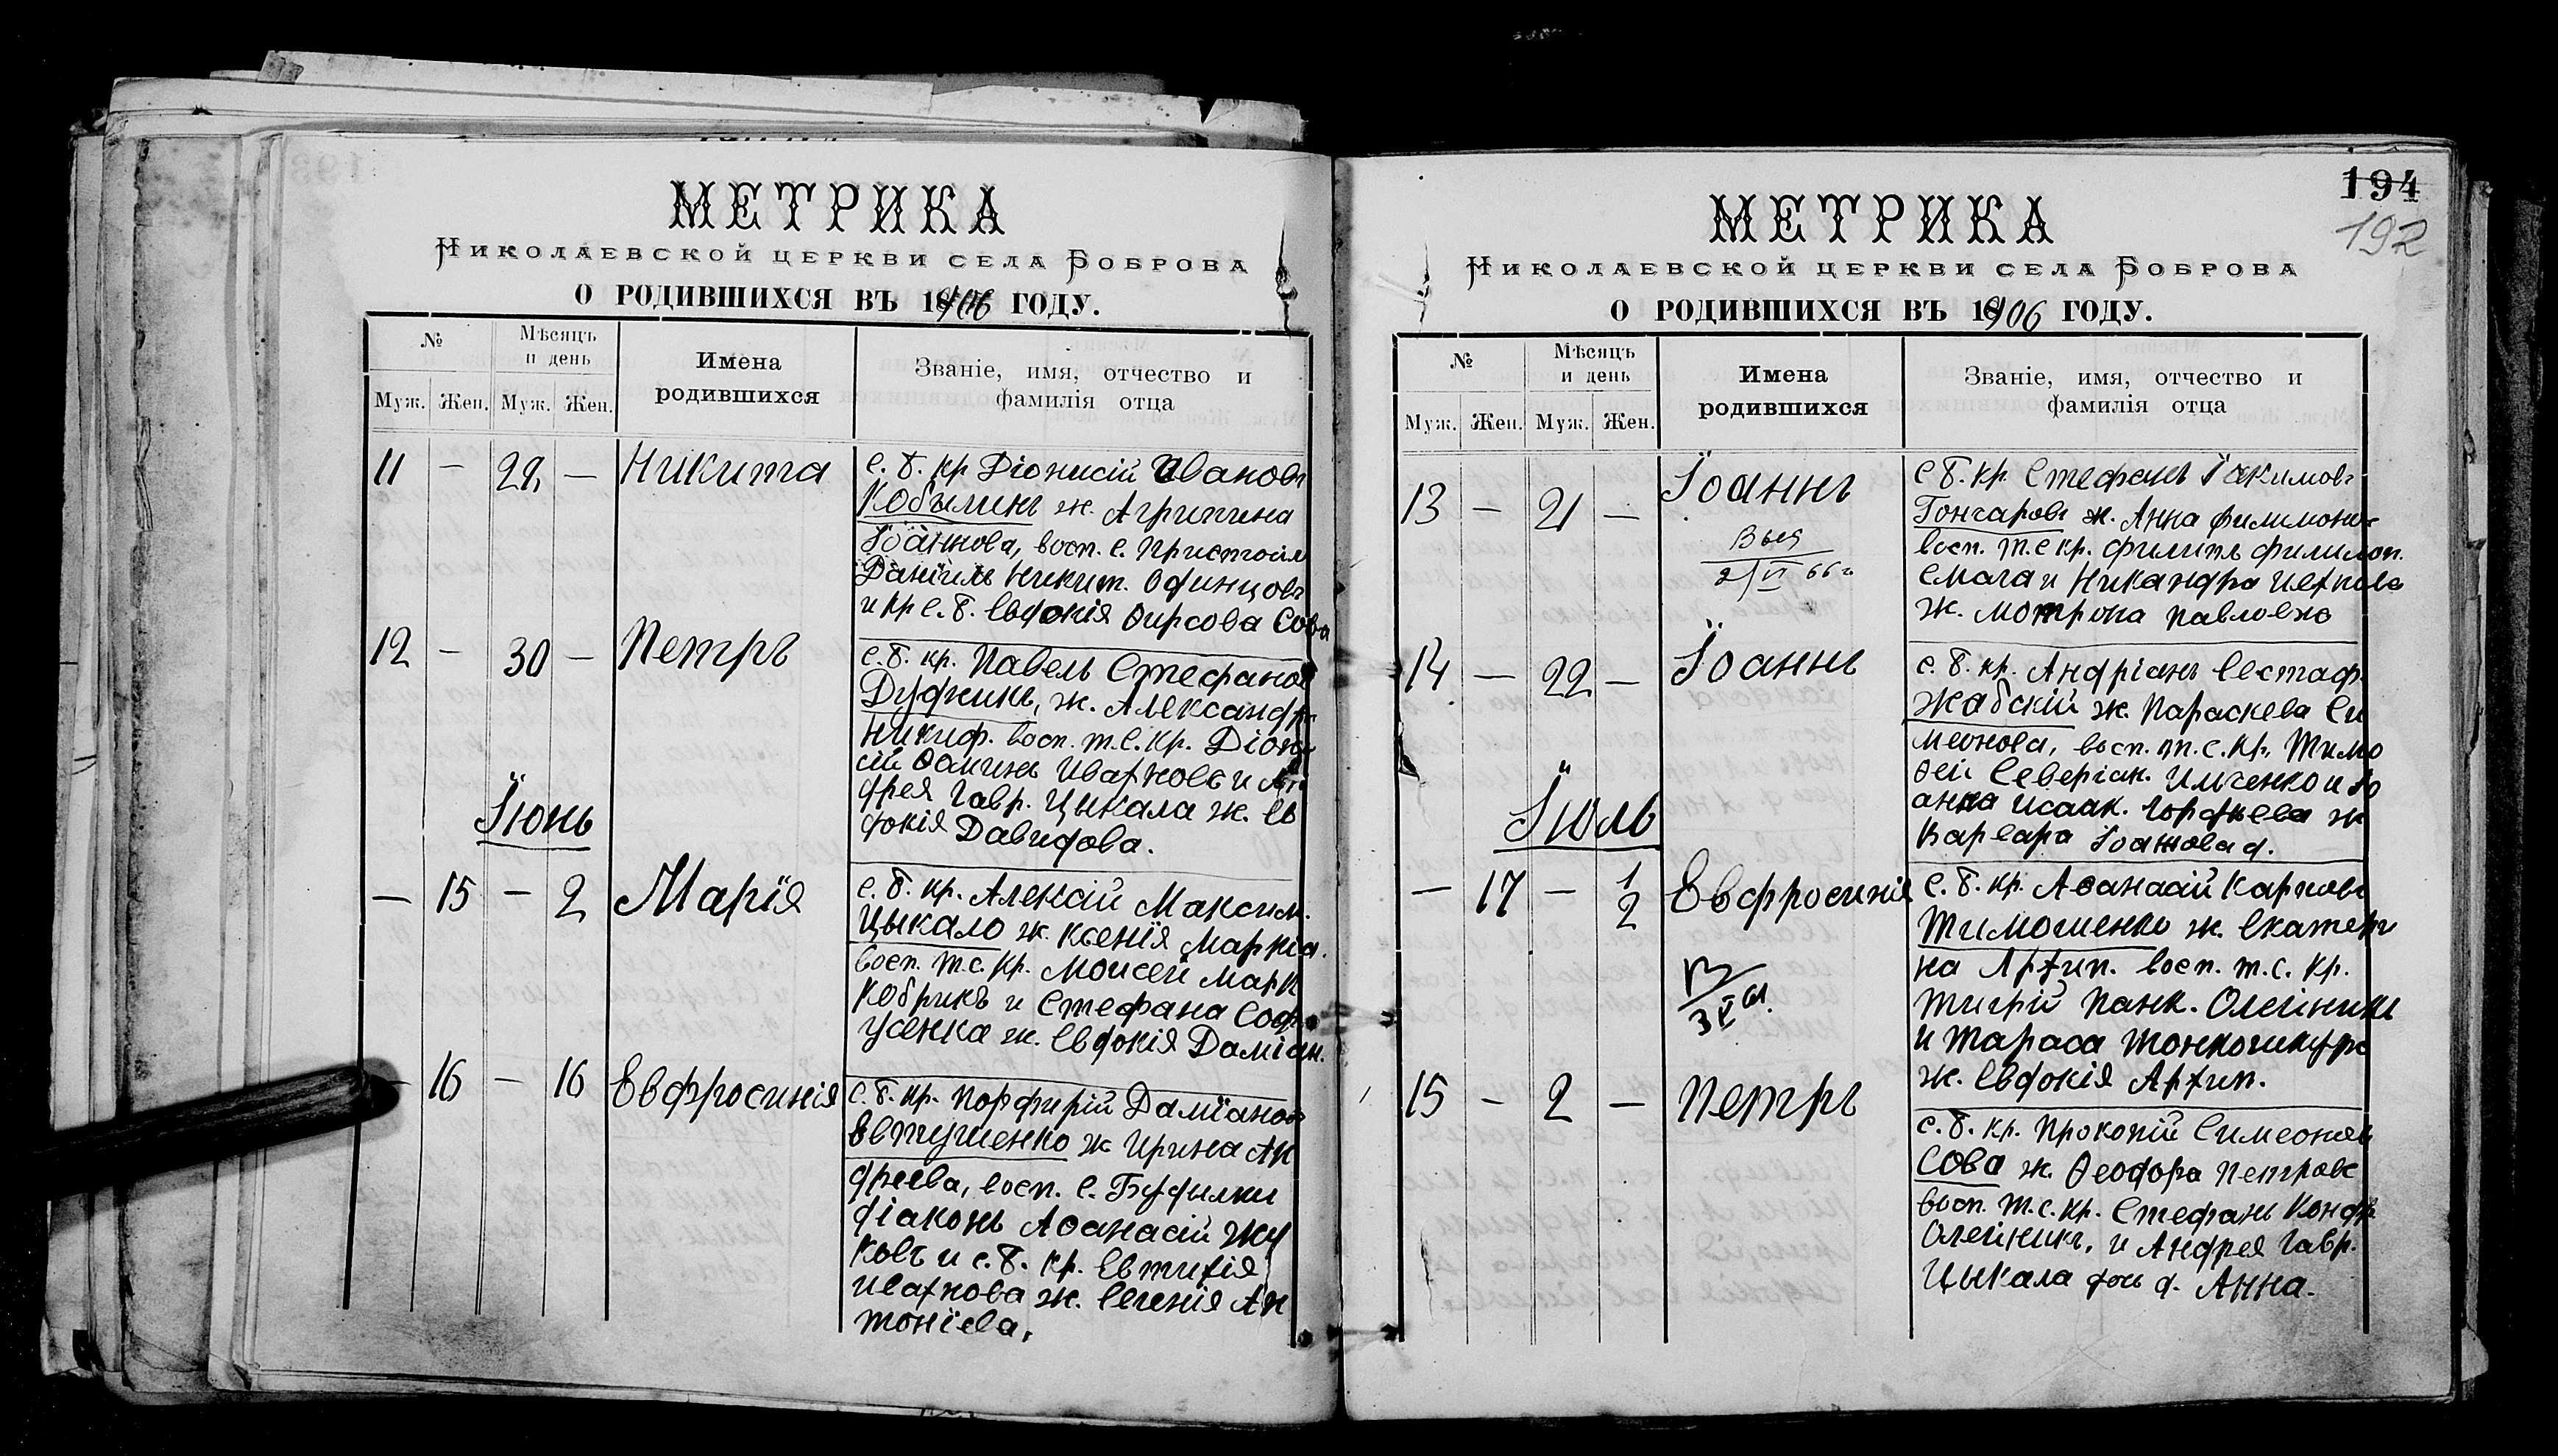 МЕТРИКА
Николаевской церкви села Боброва
О РОДИВШИХСЯ ВЪ 1906 ГОДУ.
№ Мѣсяцъ и день Имена родившихся Званіе, имя, отчество и фамилія отца
Муж. Жен. Муж. Жен.
11 — 22, — Никита с. б. кр Діонисій Ивановъ
Кобылинъ ж. Агрипина
Іоаннова, восп. с. Пристойл
Даніилъ Никит. Одинцовъ
и кр с. б. Евдокія Ѳирсова Сова
12 — 30 — Петръ с. б. кр. Павелъ Стефанов
Дудкинъ, ж. Александр
Никиф. восп. т. с. кр. Діони
сій Ѳоминъ Ивахновъ и Ан
дрея Гавр. Цыкала ж. Ев
докія Давидова.
Іюнь
— 15 — 2 Марія с. б. кр. Алексій Максим.
Цыкало ж. Ксенія Маркіа.
восп. т. с. кр. Моисей Марк
Кобрикъ и Стефана Софр
усенка ж. Евдокія Даміан.
— 16 — 16 Евфросинія с. б. кр. Порфирій Даміанов
Евтушенко ж Ирина Ан
дреева, восп. с. Будылки
діаконъ Аѳанасій Жу
ковъ и с. б. кр. Евтихія
Ивахнова ж. Евгенія Ан
тоніева.
194
192
МЕТРИКА
Николаевской церкви села Боброва
О РОДИВШИХСЯ ВЪ 1906 ГОДУ.
№ Мѣсяцъ и день Имена родившихся Званіе, имя, отчество и фамилія отца
Муж. Жен. Муж. Жен.
13 — 21 — Іоаннъ с б. кр. Стефанъ Іакимовъ
Гончаровъ ж. Анна Филимонов
Выд восп. т. с кр. Филипъ Филимон.
2/VI 66 г Смага и Никандра Ивахнова
ж. Мотрона Павловна
14 — 22 — Іоаннъ с. б. кр. Андріанъ Евстаф.
Жабскій ж. Параскева Си
меонова, восп. т. с. кр. Тимо
ѳей Северіан. Ильченко и Іо
анна Исаак. Гордѣева ж
Варвара Іоаннова д.
Іюль
— 17 — 1/2 Евфросинія с. б. кр. Аѳанасій Карповъ
Тимошенко ж. Екатери
на Архип. восп. т. с. кр.
В Тигрій Панк. Олейникъ
3 V 61. и Тараса Тонкошкура
ж. Евдокія Архип.
15 — 2 — Петръ с. б. кр. Прокопій Симеоновъ
Сова ж. Ѳеодора Петрова
восп. т. с. кр. Стефанъ Кондр.
Олейникъ, и Андрея Гавр.
Цыкала дочь д. Анна.